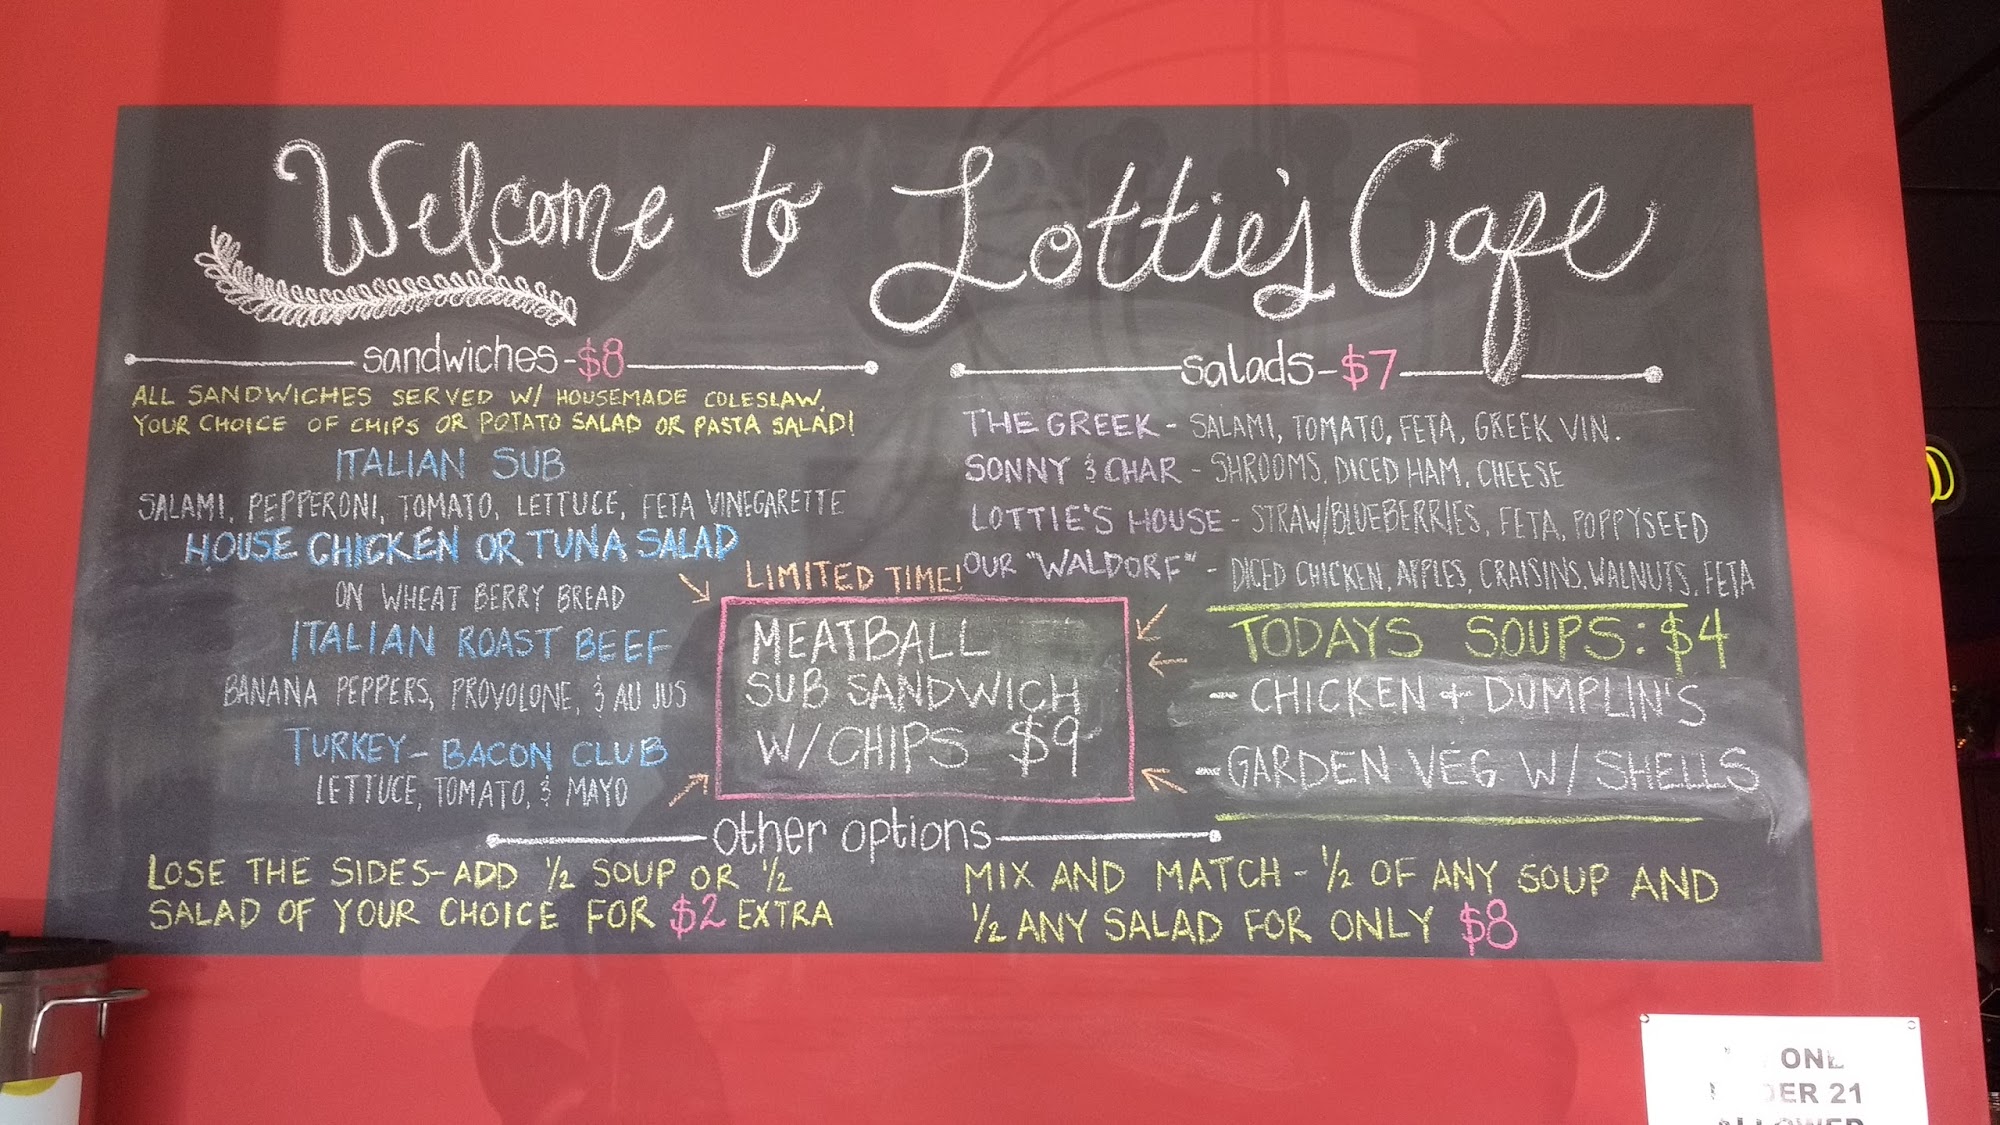 Welcome to Lottie's Cafe
sandwiches - $8
ALL SANDWICHES SERVED W/ HOUSEMADE COLESLAW,
YOUR CHOICE OF CHIPS OR POTATO SALAD OR PASTA SALAD!
ITALIAN SUB
SALAMI, PEPPERONI, TOMATO, LETTUCE, FETA VINEGARETTE
HOUSE CHICKEN OR TUNA SALAD
ON WHEAT BERRY BREAD
ITALIAN ROAST BEEF
BANANA PEPPERS, PROVOLONE, & AU JUS
TURKEY-BACON CLUB
LETTUCE, TOMATO, & MAYO
LIMITED TIME!
MEATBALL
SUB SANDWICH
W/CHIPS $9
salads - $7
THE GREEK - SALAMI, TOMATO, FETA, GREEK VIN.
SONNY & CHAR - SHROOMS, DICED HAM, CHEESE
LOTTIE'S HOUSE - STRAW/BLUEBERRIES, FETA, POPPYSEED
OUR "WALDORF" - DICED CHICKEN, APPLES, CRAISINS, WALNUTS, FETA
TODAYS SOUPS: $4
- CHICKEN + DUMPLIN'S
- GARDEN VEG W/ SHELLS
other options
LOSE THE SIDES-ADD 1/2 SOUP OR 1/2
SALAD OF YOUR CHOICE FOR $2 EXTRA
MIX AND MATCH - 1/2 OF ANY SOUP AND
1/2 ANY SALAD FOR ONLY $8
ONE
21